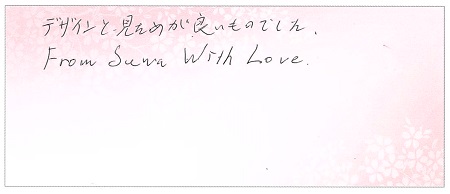 デザインと見ためが良いものでした.
From Suwa With Love.